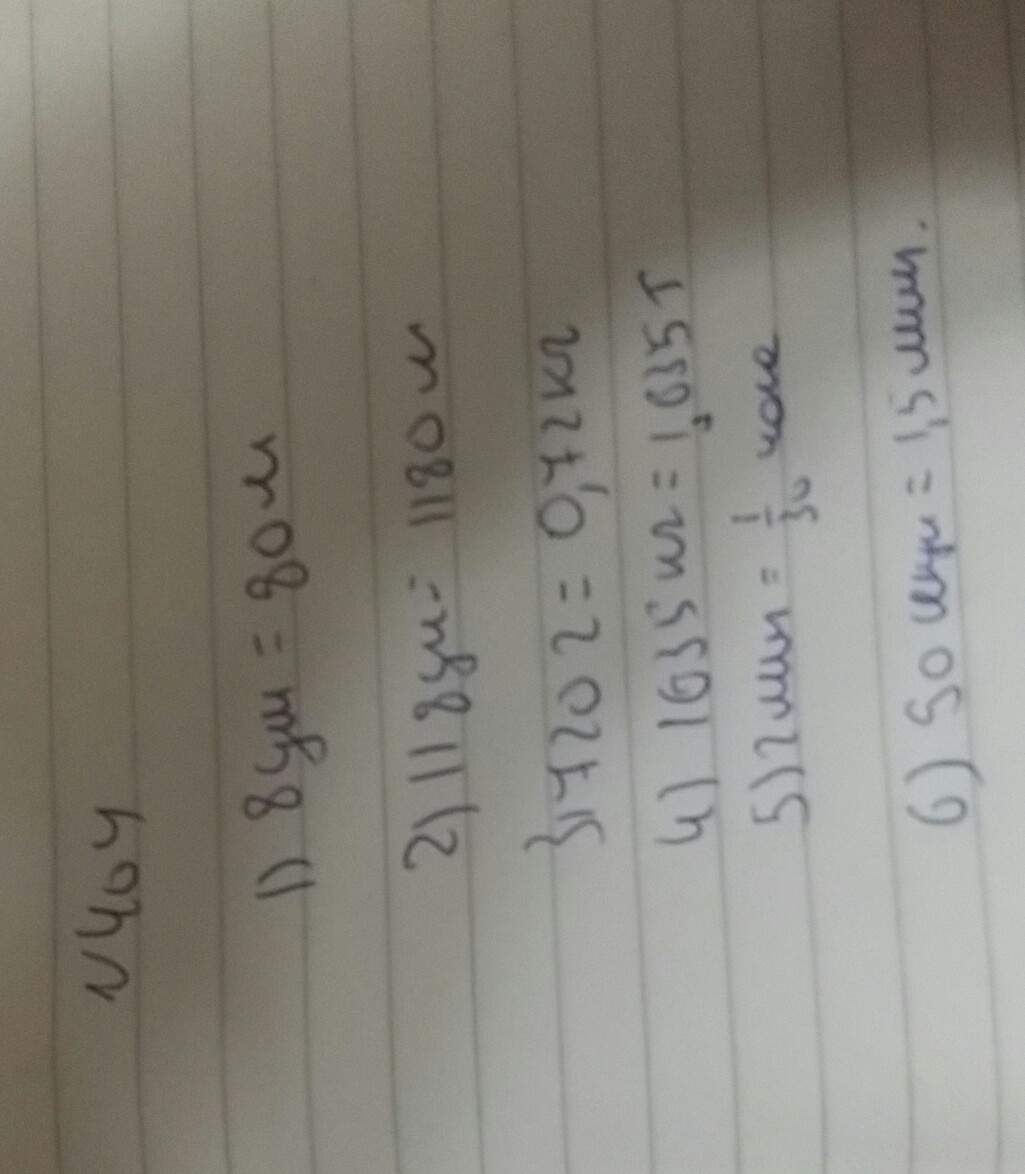 N404
1) 8дм = 80м
2) 118дм = 1180м
3) 720г = 0,72кг
4) 1635 кг = 1,635т
5) 2мин = 1/30 часа
6) 90 секун = 1,5мин.